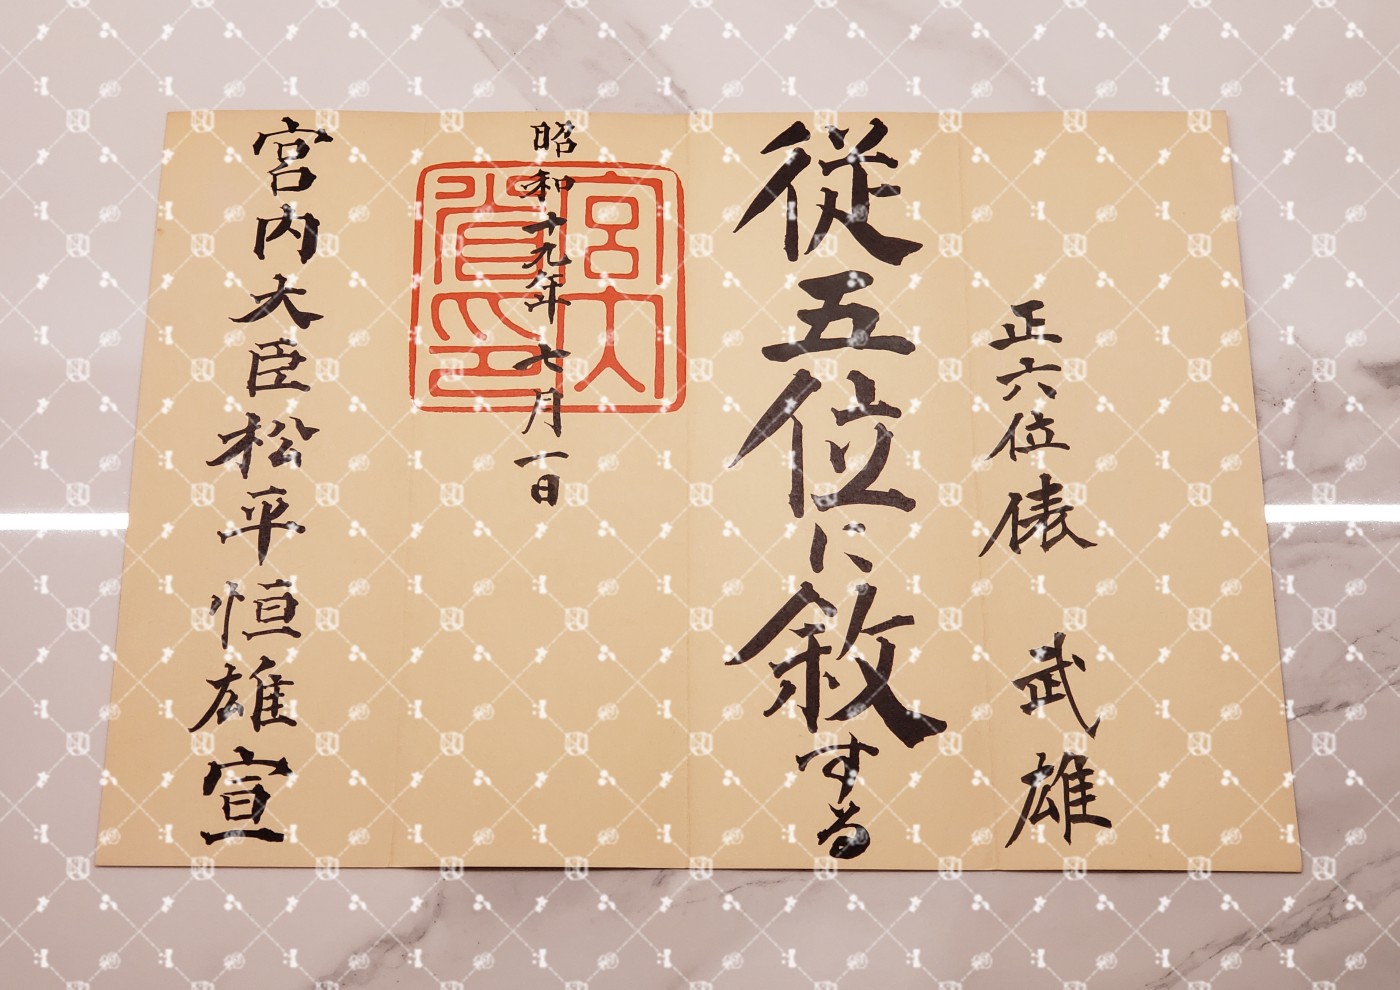 正六位俵武雄
従五位に敘する
昭和十九年七月一日
宮内大臣松平恒雄宣